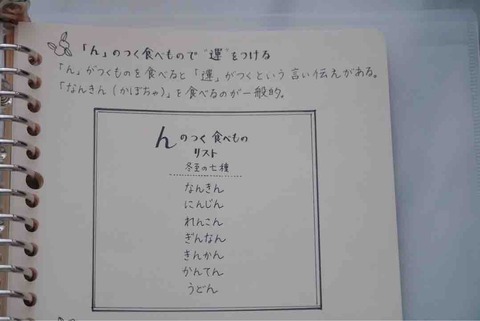 「ん」のつく食べもので"運"をつける
「ん」がつくものを食べると「運」がつくという言い伝えがある。
「なんきん（かぼちゃ）」を食べるのが一般的。
んのつく食べもの
リスト
冬至の七種
なんきん
にんじん
れんこん
ぎんなん
きんかん
かんてん
うどん